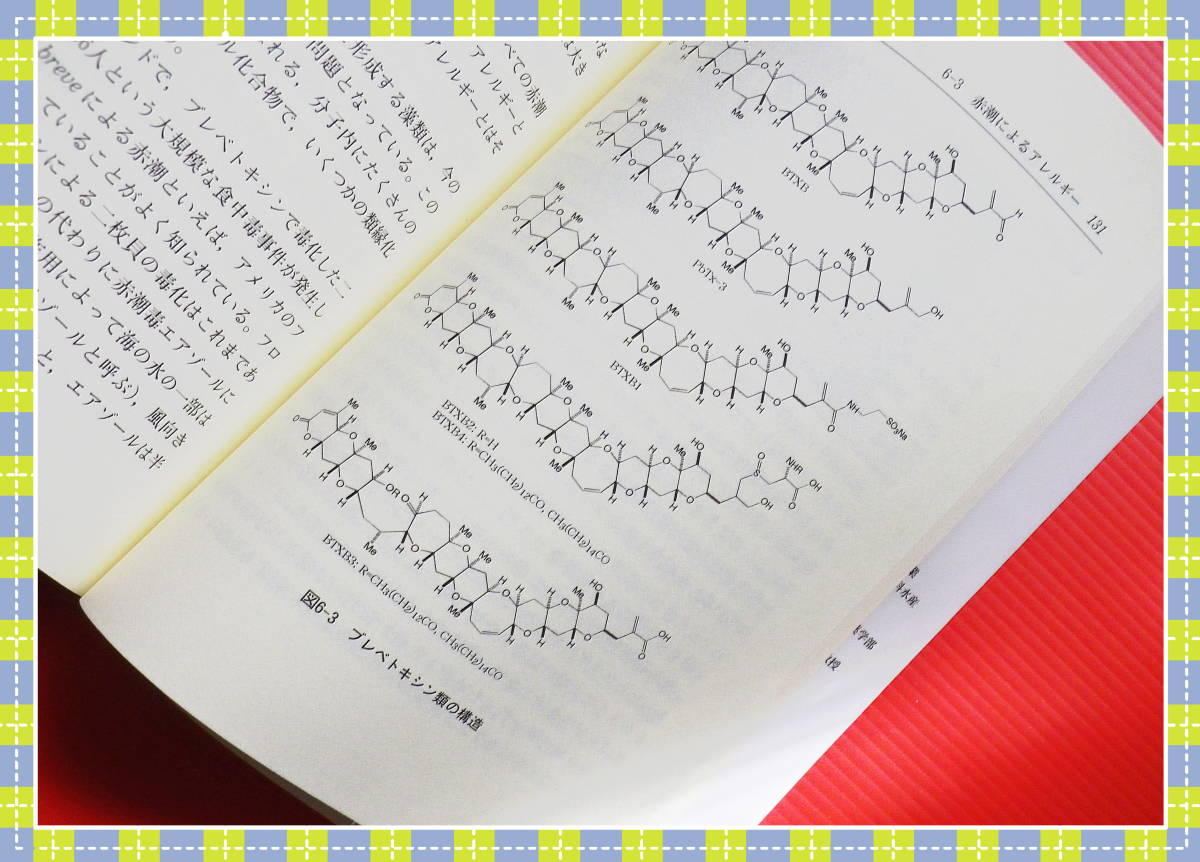 な
は大き
べての赤潮
アレルギーと
アレルギーとはそ
形成する藻類は，今の
問題となっている。この
れる，分子内にたくさんの
ル化合物で，いくつかの類縁化
。
ンドで，ブレベトキシンで毒化した二
6人という大規模な食中毒事件が発生し
breveによる赤潮といえば，アメリカのフ
ていることがよく知られている。フロ
ンによる二枚貝の毒化はこれまであ
の代わりに赤潮毒エアゾールに
用によって海の水の一部は
ールと呼ぶ)，風向き
と，エアゾールは半
6-3 赤潮によるアレルギー 131
BTXB
PbTX-3
BTXB1
BTXB2; R=H
BTXB4; R=CH3(CH2)12CO, CH3(CH2)14CO
BTXB3; R=CH3(CH2)12CO, CH3(CH2)14CO
図6-3 ブレベトキシン類の構造
水産
学部
授